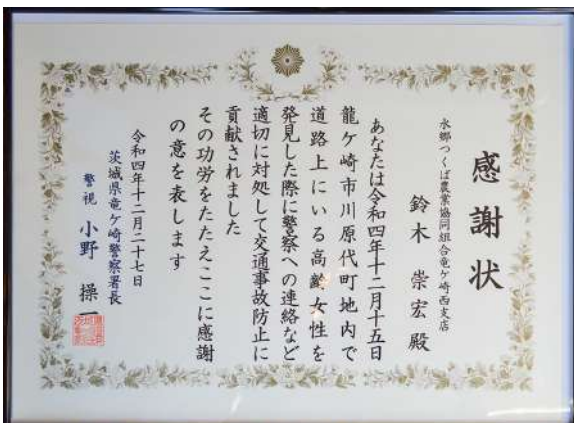 感謝状
水郷つくば農業協同組合竜ケ崎西支店
鈴木崇宏殿
あなたは令和四年十二月十五日
龍ケ崎市川原代町地内で
道路上にいる高齢女性を
発見した際に警察への連絡など
適切に対処して交通事故防止に
貢献されました
その功労をたたえここに感謝
の意を表します
令和四年十二月二十七日
茨城県竜ケ崎警察署長
警視 小野操一